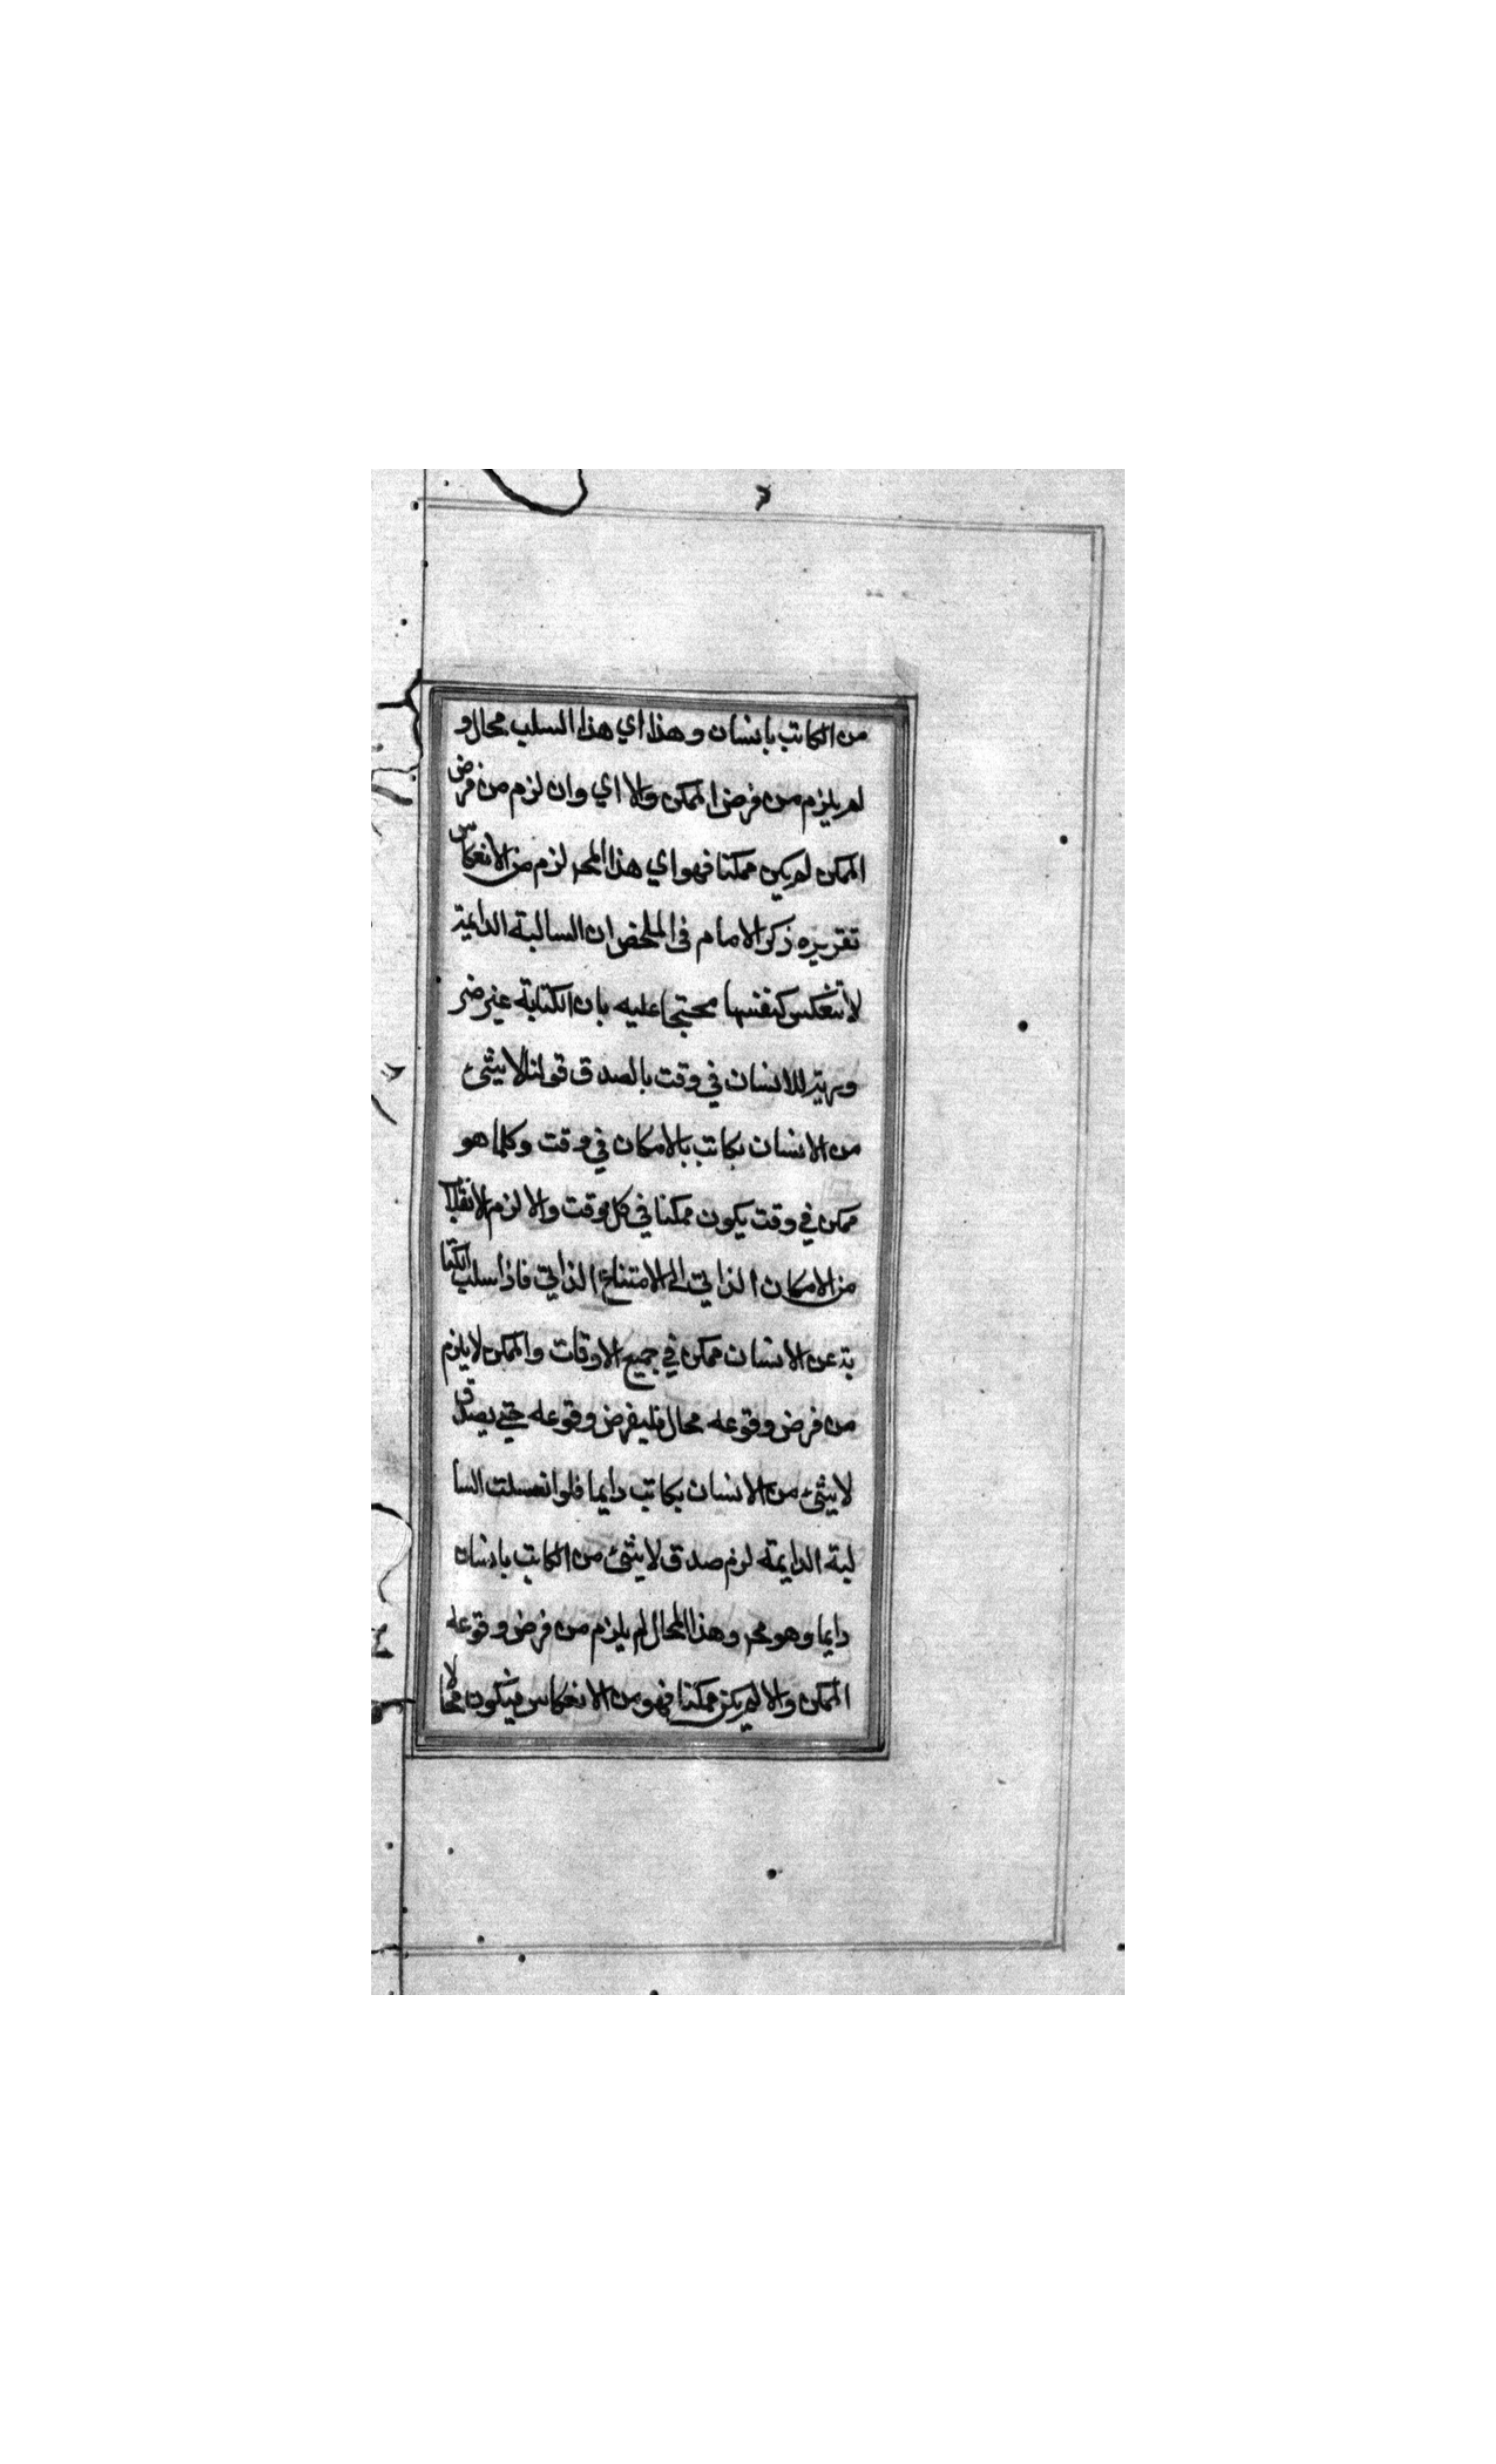 من الكاتب بانسان وهذا اي هذا السلب محال و
لم يلزم من فرض الممكن والا اي وان لزم من فرض
الممكن لم يكن ممكنا فهو اي هذا المح لزم من الانعكاس
تقريره ذكر الامام في الملخص ان السالبة الدايمة
لا تنعكس كنفسها محتجا عليه بان الكتابة غير ضر
ورية للانسان في وقت بالصدق قولنا لا شئ
من الانسان بكاتب بالامكان في وقت وكلما هو
ممكن في وقت يكون ممكنا في كل وقت والا لزم الانقلاب
من الامكان الذاتي الى الامتناع الذاتي فاذا سلب الكتا
بة عن الانسان ممكن في جميع الاوقات والممكن لا يلزم
من فرض وقوعه محال فليفرض وقوعه حتى يصدق
لا شئ من الانسان بكاتب دايما فلو انعسلت السا
لبة الدايمة لزم صدق لا شئ من الكاتب بانسان
دايما وهو مح وهذا المحال لم يلزم من فرض وقوعه
الممكن والا لم يكن ممكنا فهو من الانعكاس فيكون محالا